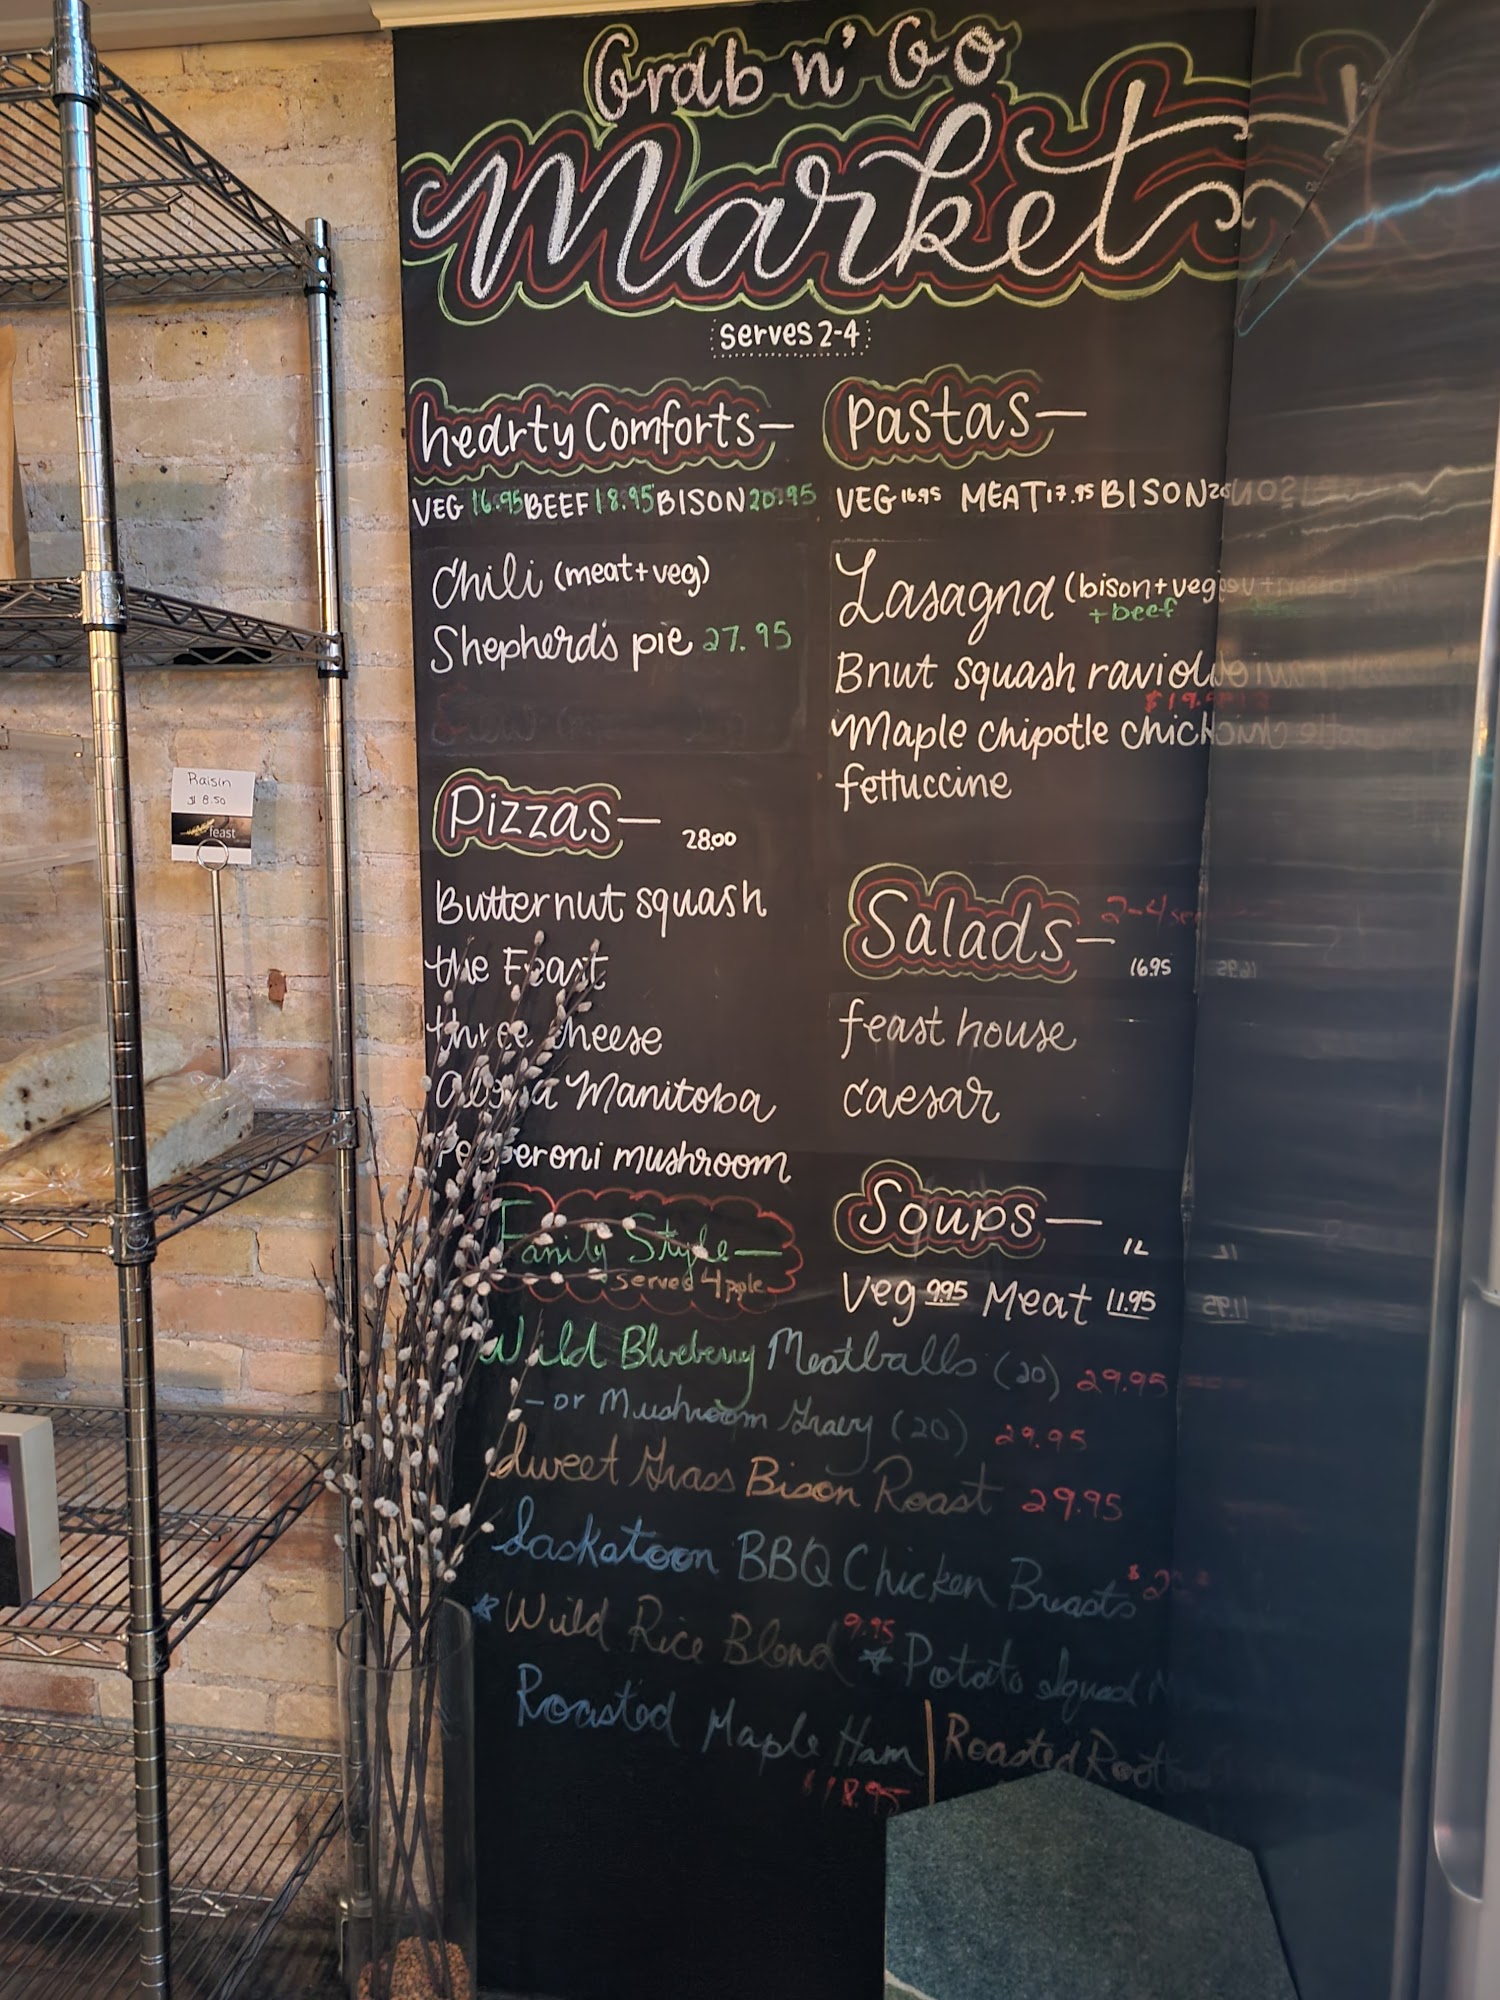 Grab n' Go
Market
serves 2-4
hearty Comforts—
VEG 16.95 BEEF 18.95 BISON 20.95
Chili (meat+veg)
Shepherd's pie 27.95
Pizzas— 28.00
Butternut squash
the Feast
three cheese
Manitoba
Pepperoni mushroom
Pastas—
VEG 16.95 MEAT 17.95 BISON
Lasagna (bison+veg
+beef
Bnut squash ravioli
Maple chipotle chick
fettuccine
Salads— 2-4
16.95
feast house
caesar
Soups— 1L
Veg 9.95 Meat 11.95
Family Style—
serves 4 pple
Wild Blueberry Meatballs (20) 29.95
- or Mushroom Gravy (20) 29.95
Sweet Grass Bison Roast 29.95
Saskatoon BBQ Chicken Breasts
Wild Rice Blend 9.95 Potato
Roasted Maple Ham | Roasted Root
$18.95
Raisin
$8.50
feast